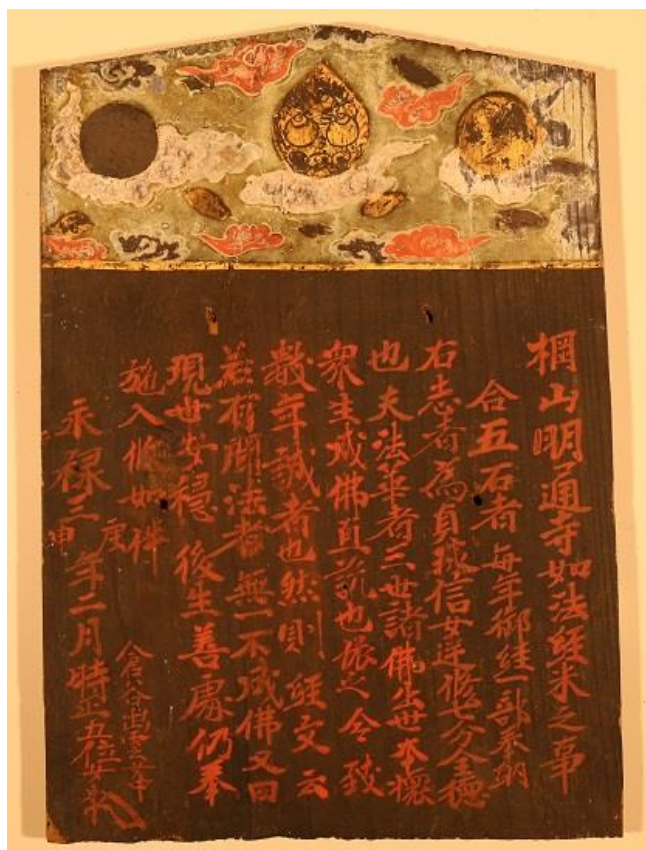 棡山明通寺如法経米之事
合五石者毎年御経一部奉納
右志者為貞珎信女逆修七分全得
也夫法華者三世諸佛出世本懐
衆生成佛直道也依之令致
数年誠者也然則経文云
若有聞法者無一不成佛又曰
現世安穏後生善處仍奉
施入状如件
永禄三年庚申二月時正